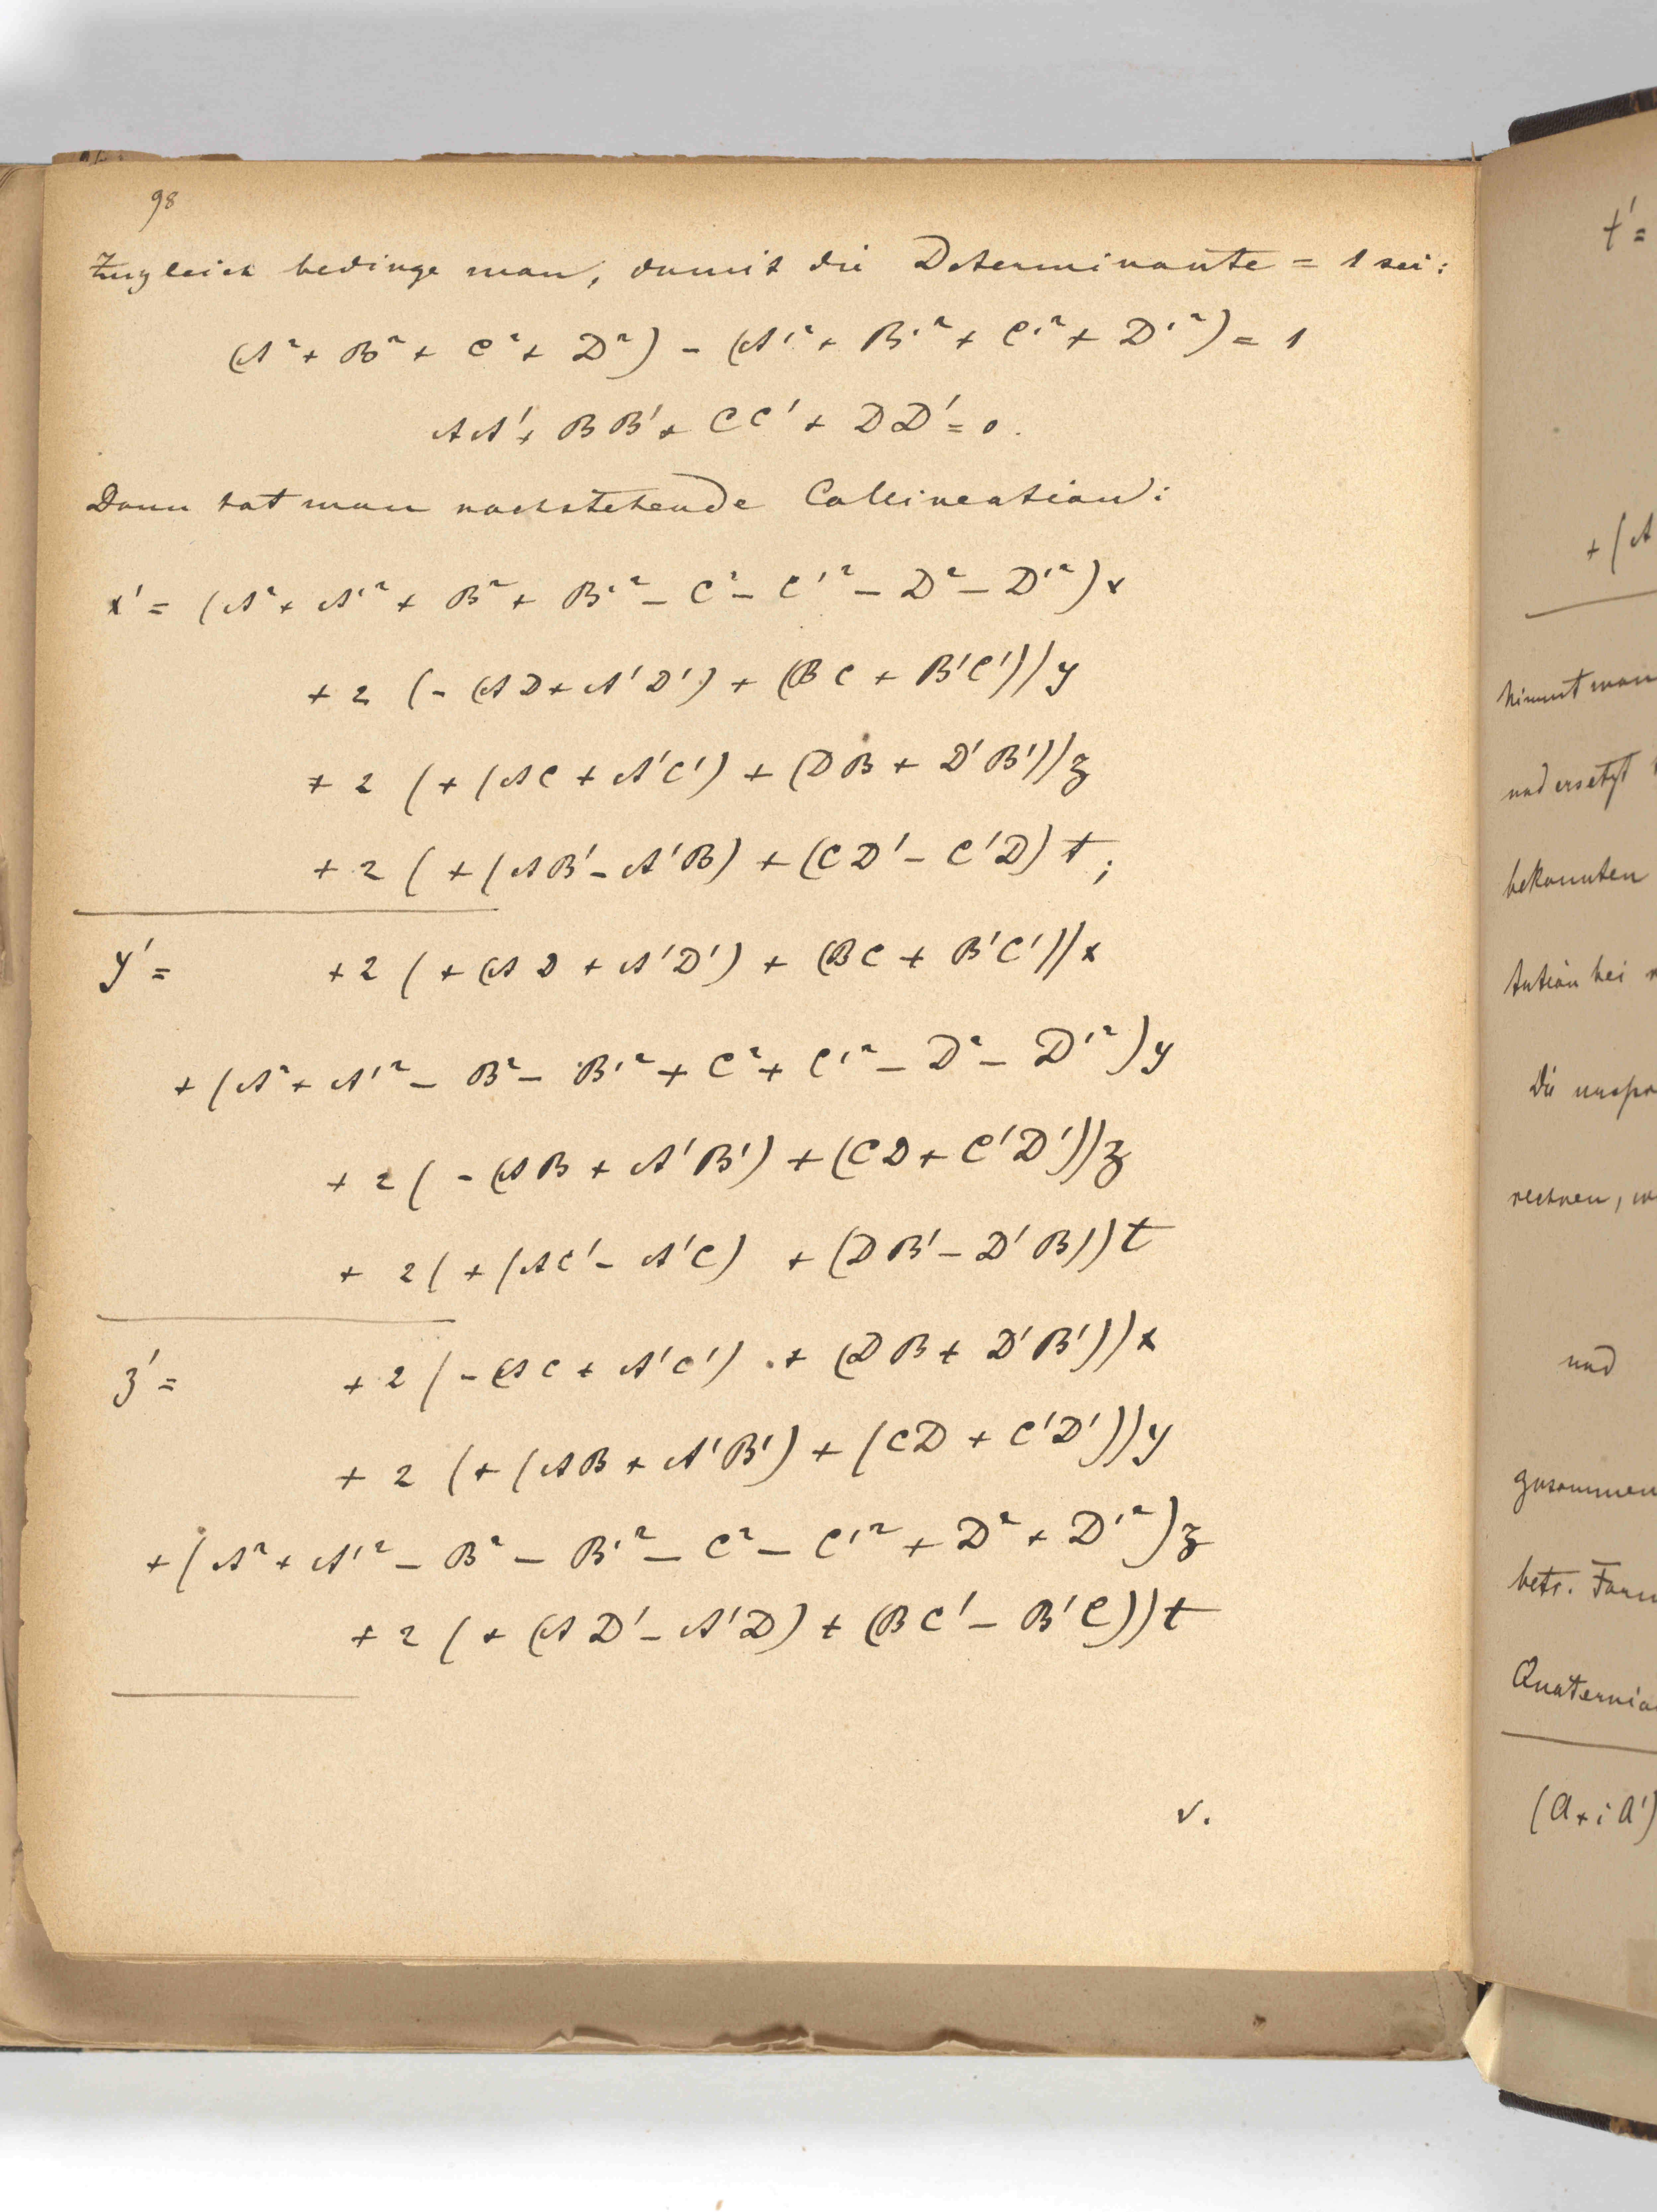 98
Zugleich bedinge man, damit die Determinante = 1 sei:
(A² + B² + C² + D²) - (A'² + B'² + C'² + D'²) = 1
AA' + BB' + CC' + DD' = 0.
Dann hat man nachstehende Collineation:
x' = (A² + A'² + B² + B'² - C² - C'² - D² - D'²)x
+ 2 (- (AD + A'D') + (BC + B'C'))y
+ 2 (+ (AC + A'C') + (DB + D'B'))z
+ 2 (+ (AB' - A'B) + (CD' - C'D) t;
y' = +2 (+ (AD + A'D') + (BC + B'C'))x
+ (A² + A'² - B² - B'² + C² + C'² - D² - D'²)y
+ 2 (- (AB + A'B') + (CD + C'D'))z
+ 2 (+ (AC' - A'C) + (DB' - D'B))t
z' = + 2 (- (AC + A'C') + (DB + D'B'))x
+ 2 (+ (AB + A'B') + (CD + C'D'))y
+ (A² + A'² - B² - B'² - C² - C'² + D² + D'²)z
+ 2 (+ (AD' - A'D) + (BC' - B'C))t
v.
t' =
+ (A
Nimmt man
und ersetzt
bekannten
tution bei
Die
rechnen,
und
zusammen
betr. Form
Quaternio
(A + i A')